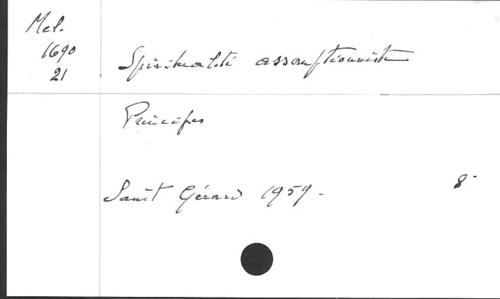 Mel.
1690
21
Spiritualité assomptionniste
Principes
Saint Gérard 1959.
8°